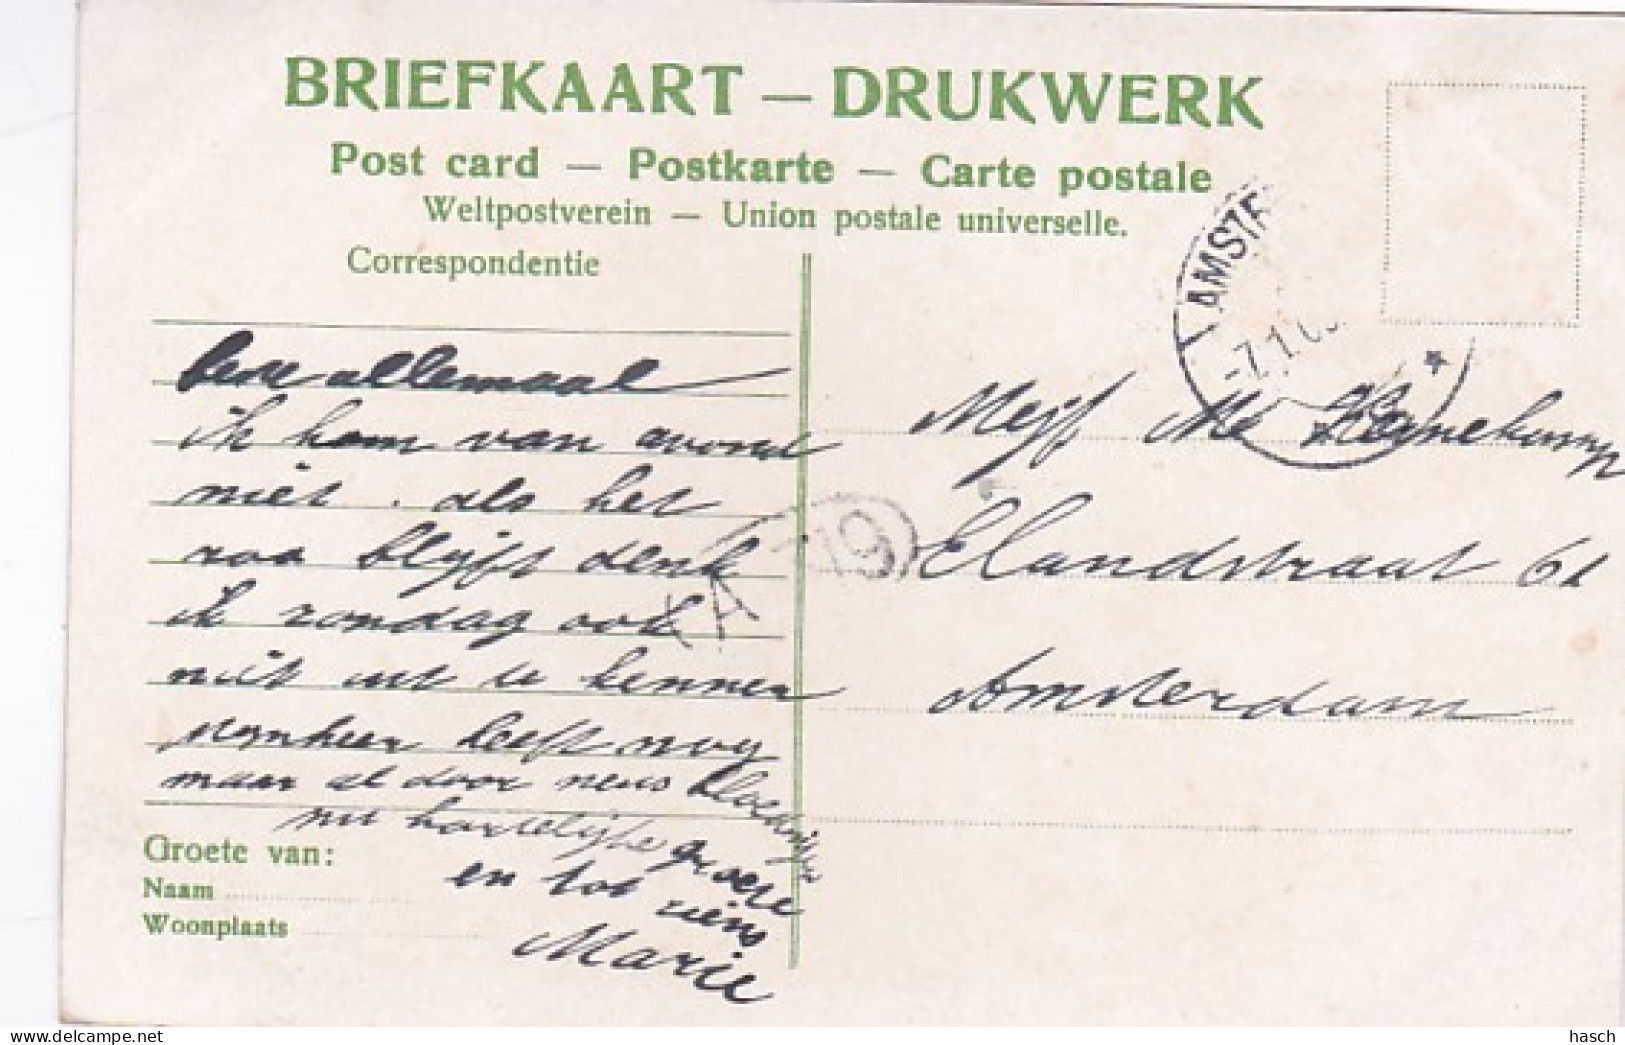 BRIEFKAART — DRUKWERK
Post card — Postkarte — Carte postale
Weltpostverein — Union postale universelle.
Correspondentie
allemaal
ik kom van avond
niet . als het
zoo blijft denk
ik zondag ook
niet uit te kennen
mynheer heeft nog
maar al door neus bloedingen
nu hartelijke groete
en tot ziens
Marie
Groete van:
Naam
Woonplaats
AMSTE
-7.1.0
A
19
Mejf
Elandstraat 61
Amsterdam
hasch